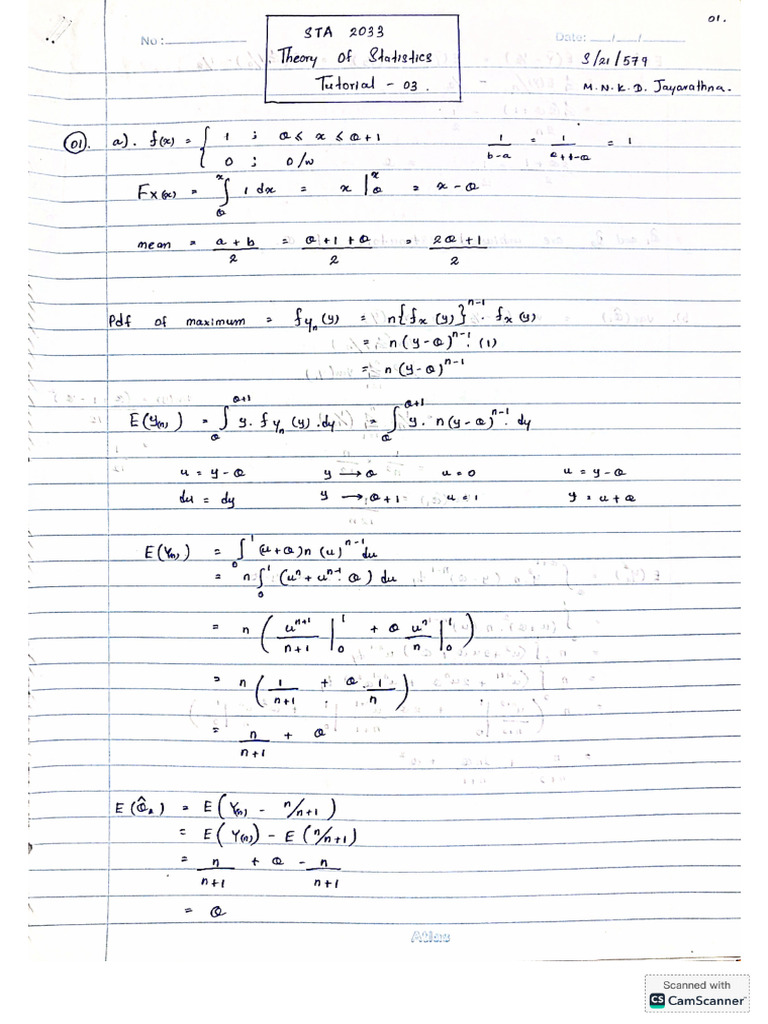 01.
STA 2033
Theory of Statistics
Tutorial - 03.
No :
Date: __/__/__
S/21/579
M.N.K.D. Jayarathna.
01. a). f(x) = { 1 ; θ ≤ x ≤ θ+1
0 ; o/w
1/(b-a) = 1/(θ+1-θ) = 1
F_X(x) = ∫_θ^x 1 dx = x |_θ^x = x - θ
mean = (a + b)/2 = (θ+1+θ)/2 = (2θ+1)/2
Pdf of maximum = f_{y_n}(y) = n{f_x(y)}^{n-1} · f_x(y)
= n(y-θ)^{n-1} · (1)
= n(y-θ)^{n-1}
E(Y_(n)) = ∫_θ^{θ+1} y. f_{y_n}(y).dy = ∫_θ^{θ+1} y. n(y-θ)^{n-1}. dy
u = y-θ y → θ u = 0 u = y-θ
du = dy y → θ+1 u = 1 y = u+θ
E(Y_(n)) = ∫_0^1 (u+θ) n (u)^{n-1} du
= n ∫_0^1 (u^n + u^{n-1}. θ) du
= n ( u^{n+1}/(n+1) |_0^1 + θ u^n/n |_0^1 )
= n ( 1/(n+1) + θ. 1/n )
= n/(n+1) + θ
E(θ̂_2) = E(Y_(n) - n/n+1)
= E(Y_(n)) - E(n/n+1)
= n/(n+1) + θ - n/(n+1)
= θ
Atlas
Scanned with
CS CamScanner